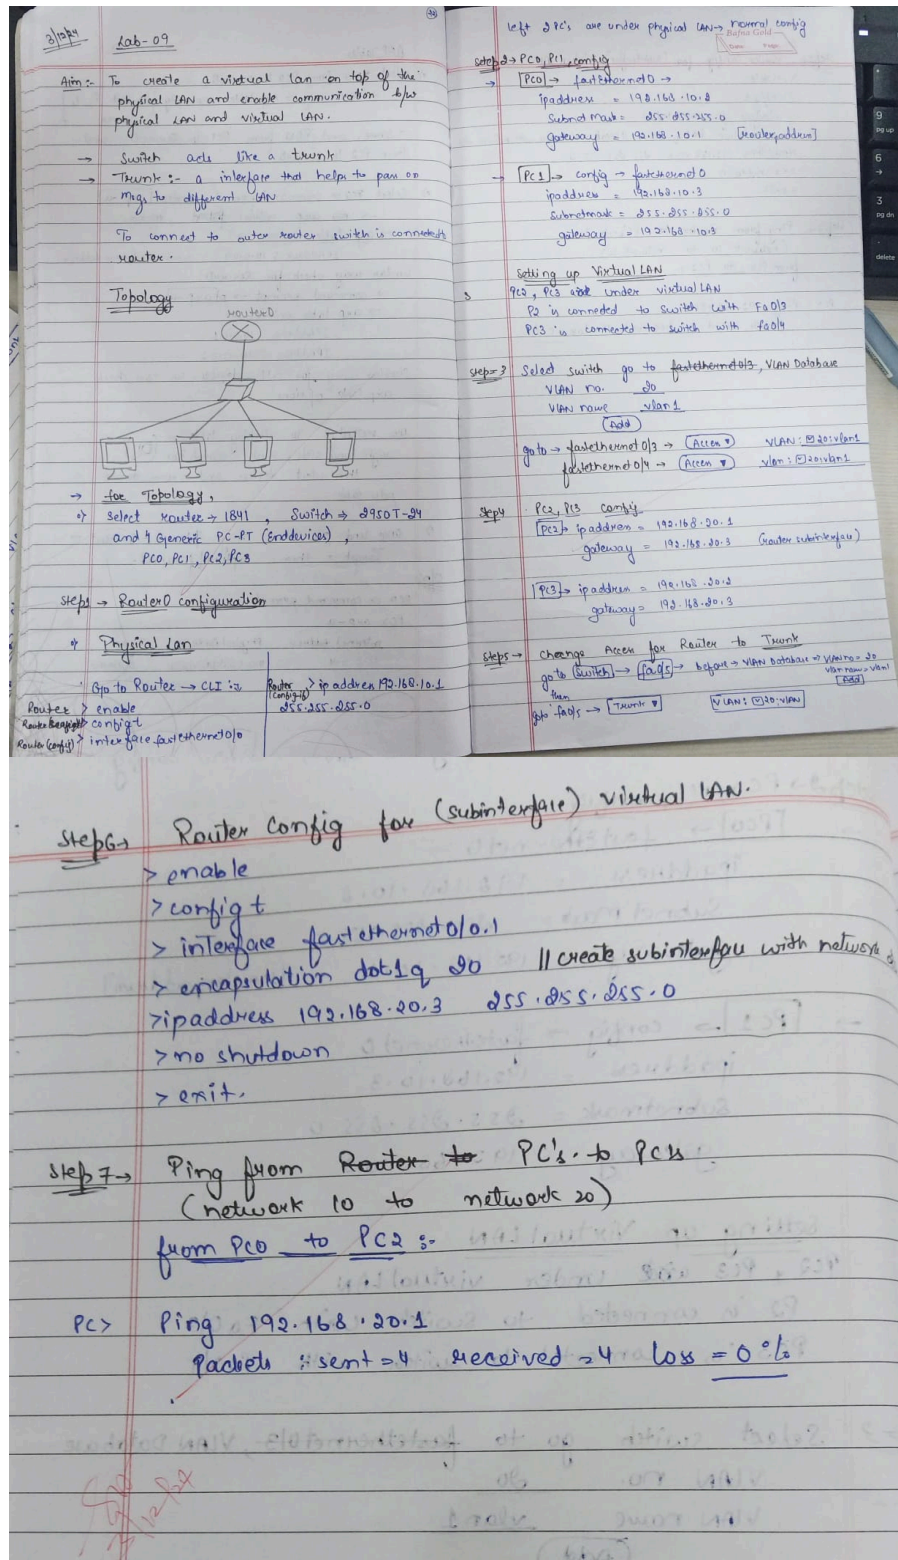 3/12/24
Lab-09
Aim:- To create a virtual lan on top of the
physical LAN and enable communication b/w
physical LAN and virtual LAN.
→ Switch acts like a trunk
→ Trunk:- a interface that helps to pass on
msgs to different LAN
To connect to outer router switch is connected to
router.
Topology
router0
→ for Topology,
Select router → 1841, Switch ⇒ 2950T-24
and 4 Generic PC-PT (Enddevices),
PC0, PC1, PC2, PC3
Step1 → Router0 configuration
Physical Lan
Go to Router → CLI :-
Router > enable
> config t
Router(config) > interface fastethernet0/0
Router (config-if) > ip address 192.168.10.1
255.255.255.0
left 2 PC's are under physical LAN → normal config
Bafna Gold
Date: Page:
Step2 → PC0, PC1, config
→ PC0 → fastethernet0 →
ipaddress = 192.168.10.2
Subnet Mask = 255.255.255.0
gateway = 192.168.10.1 [router address]
→ PC1 → config → fastethernet0
ipaddress = 192.168.10.3
Subnetmask = 255.255.255.0
gateway = 192.168.10.3
Setting up Virtual LAN
PC2, PC3 under virtual LAN
P2 is connected to switch with Fa0/3
PC3 is connected to switch with fa0/4
Step-3 Select switch go to fastethernet0/3, VLAN Database
VLAN no. 20
VLAN name vlan1
Add
go to → fastethernet0/3 → Access ▼ VLAN: ☑20:vlan1
fastethernet0/4 → Access ▼ vlan: ☑20:vlan1
Step4 PC2, PC3 config
PC2 → ipaddress = 192.168.20.1
gateway = 192.168.20.3 (router subinterface)
PC3 → ipaddress = 190.168.20.2
gateway = 192.168.20.3
Step5 → Change Access for Router to Trunk
go to Switch → fa0/5 → before → VLAN Database → VLAN no = 20
vlan name = vlan1
Add
then
goto fa0/5 → Trunk ▼ VLAN: ☑20:vLAN
Step6→ Router Config for (subinterface) virtual LAN.
> enable
> config t
> interface fastethernet0/0.1
> encapsulation dot1q 20 // create subinterface with network
> ipaddress 192.168.20.3 255.255.255.0
> no shutdown
> exit.
Step 7→ Ping from Router to PC's to PC's
(network 10 to network 20)
from PC0 to PC2 :-
PC> Ping 192.168.20.1
Packets : sent = 4 received = 4 loss = 0%